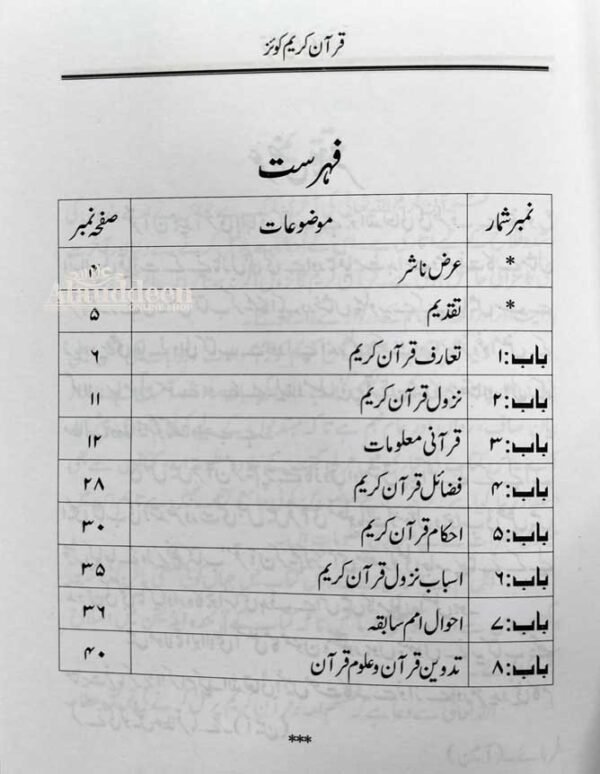 قرآن کریم کوئز
فہرست
نمبر شمار موضوعات صفحہ نمبر
* عرض ناشر ۴
* تقدیم ۵
باب:۱ تعارف قرآن کریم ۶
باب:۲ نزول قرآن کریم ۱۱
باب:۳ قرآنی معلومات ۱۲
باب:۴ فضائل قرآن کریم ۲۸
باب:۵ احکام قرآن کریم ۳۰
باب:۶ اسباب نزول قرآن کریم ۳۵
باب:۷ احوال امم سابقہ ۳۶
باب:۸ تدوین قرآن و علوم قرآن ۴۰
***